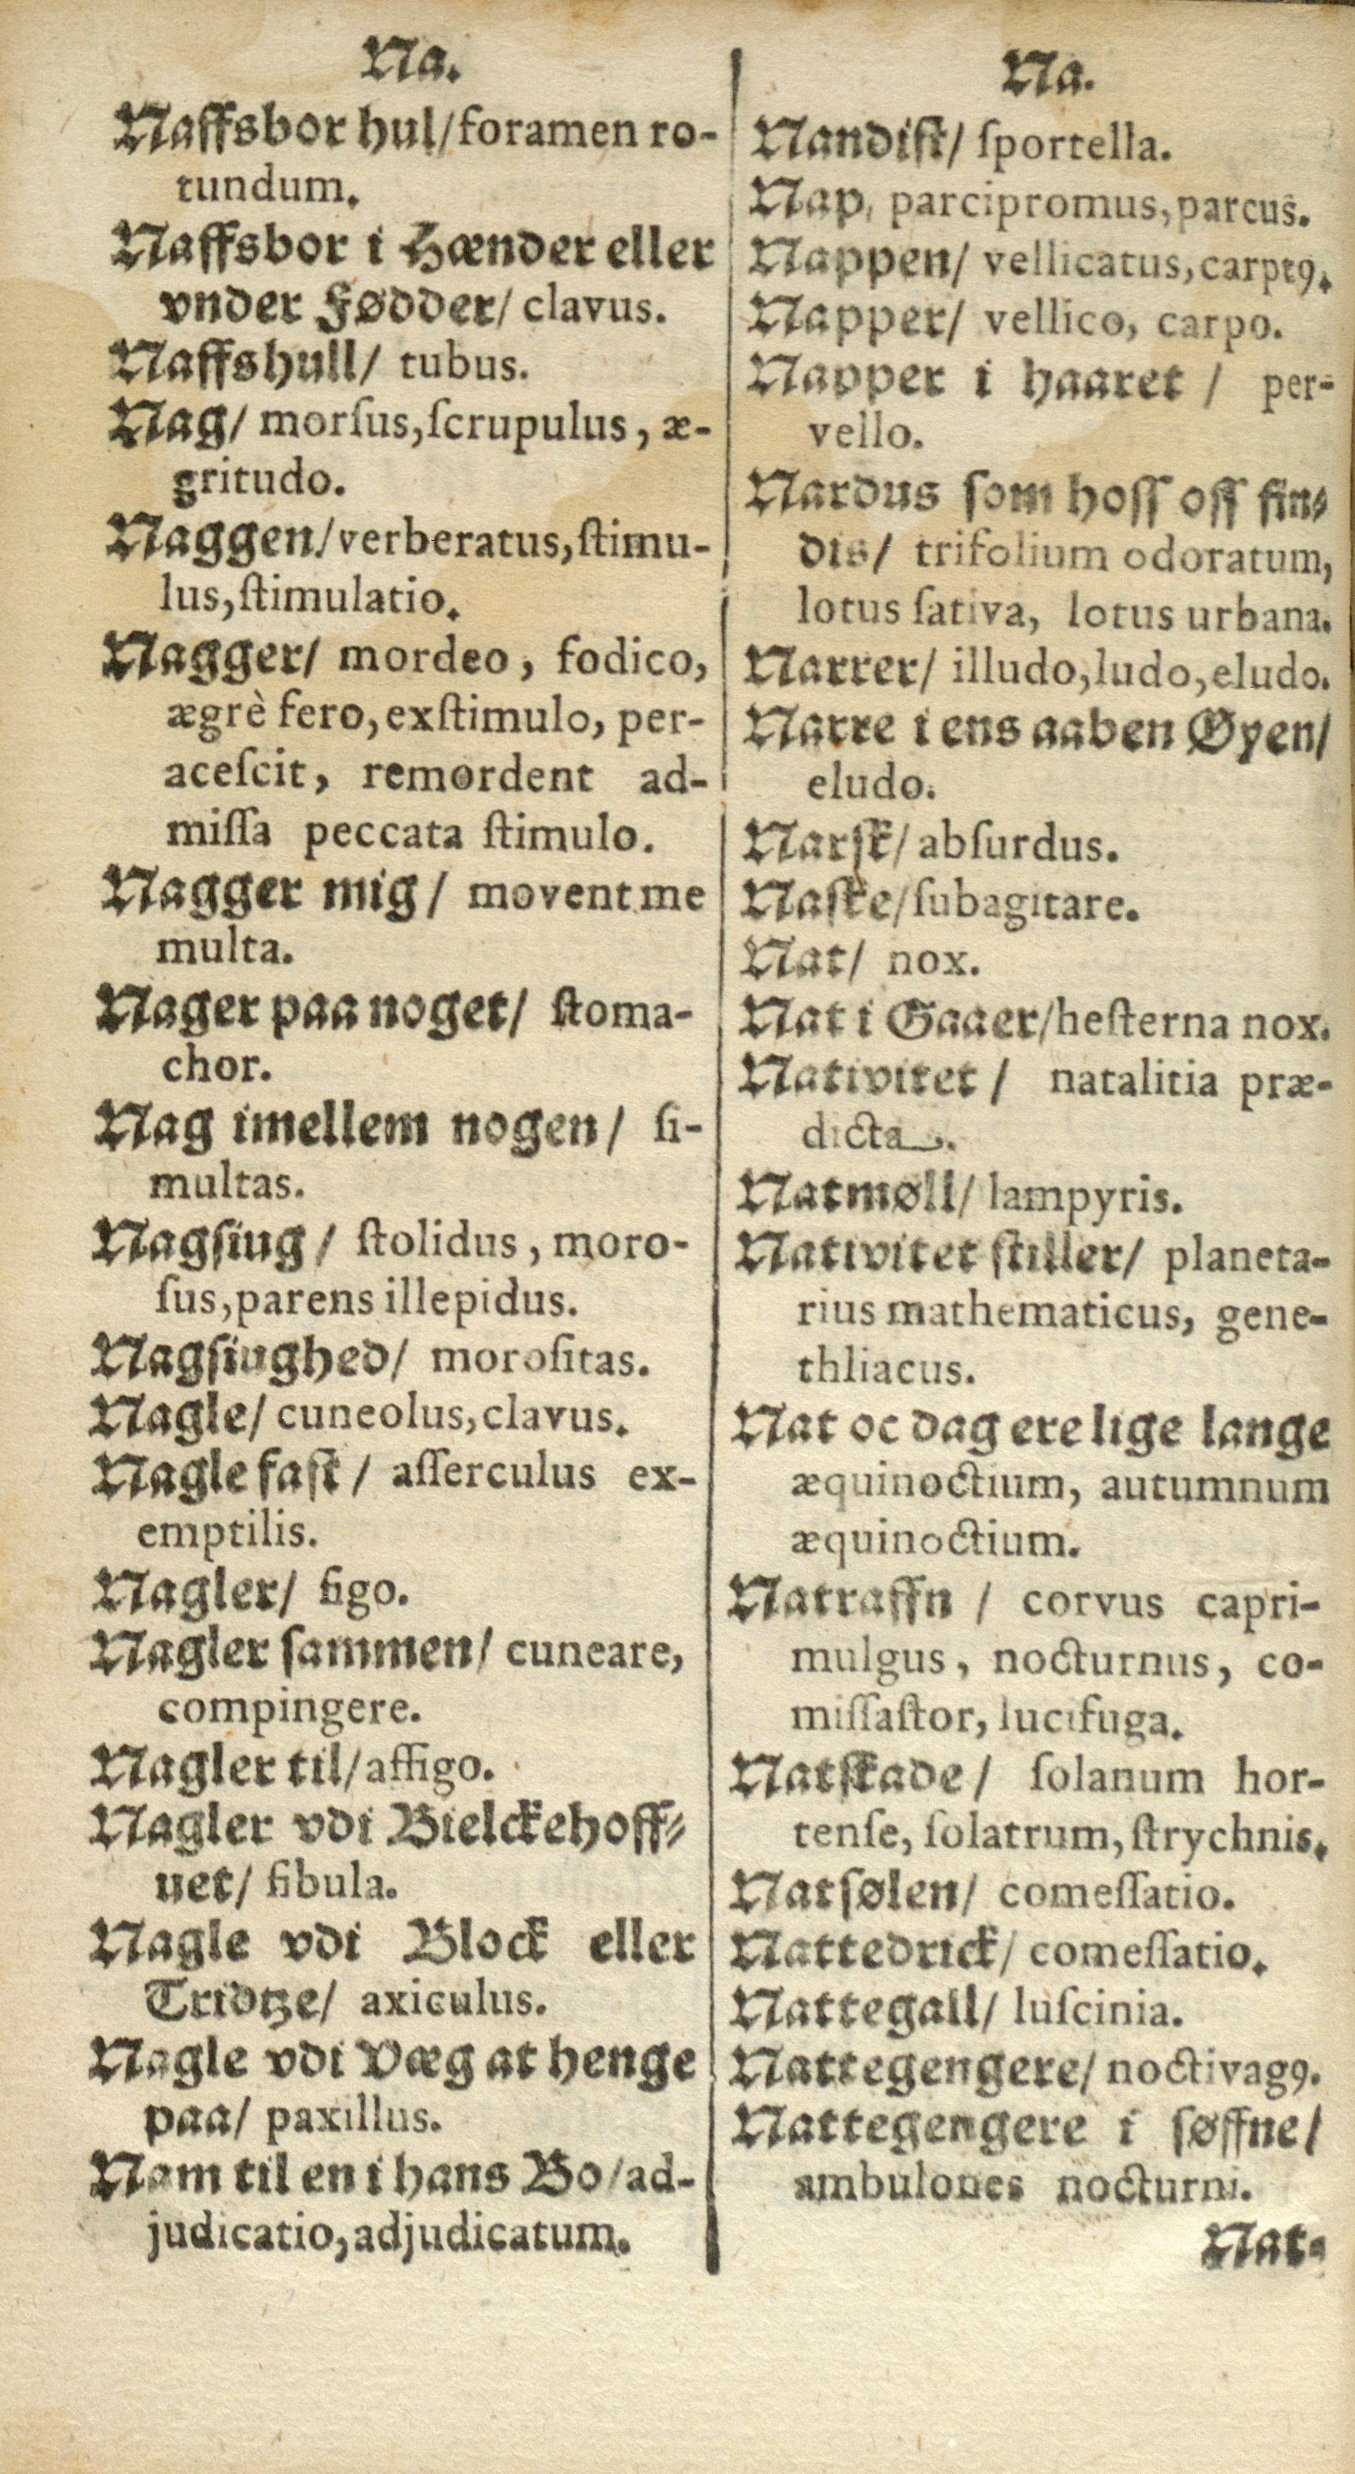 Na.
Naffsbor hul/foramen ro-
tundum.
Naffsbor i Hænder eller
vnder Fødder/ clavus.
Naffshull/ tubus.
Nag/ morſus,ſcrupulus, æ-
gritudo.
Naggen/verberatus,ſtimu-
lus,ſtimulatio.
Nagger/ mordeo, fodico,
ægrè fero, exſtimulo, per-
aceſcit, remordent ad-
miſſa peccata ſtimulo.
Nagger mig/ movent me
multa.
Nager paa noget/ ſtoma-
chor.
Nag imellem nogen/ ſi-
multas.
Nagſiug/ ſtolidus, moro-
ſus,parens illepidus.
Nagſiughed/ moroſitas.
Nagle/ cuneolus,clavus.
Nagle faſt/ aſſerculus ex-
emptilis.
Nagler/ figo.
Nagler ſammen/ cuneare,
compingere.
Nagler til/affigo.
Nagler vdi Bielckehoff⸗
uet/ fibula.
Nagle vdi Block eller
Tridtze/ axiculus.
Nagle vdi Væg at henge
paa/ paxillus.
Nam til en i hans Bo/ad-
judicatio,adjudicatum.
Na.
Nandiſt/ ſportella.
Nap, parcipromus,parcus.
Nappen/ vellicatus,carptꝰ.
Napper/ vellico, carpo.
Napper i haaret/ per-
vello.
Nardus ſom hoſſ oſſ fin⸗
dis/ trifolium odoratum,
lotus ſativa, lotus urbana.
Narrer/ illudo,ludo,eludo.
Narre i ens aaben Øyen/
eludo.
Narſk/ abſurdus.
Naſke/ſubagitare.
Nat/ nox.
Nat i Gaaer/heſterna nox.
Nativitet/ natalitia præ-
dicta.
Natmøll/ lampyris.
Nativitet ſtiller/ planeta-
rius mathematicus, gene-
thliacus.
Nat oc dag ere lige lange
æquinoctium, autumnum
æquinoctium.
Natraffn/ corvus capri-
mulgus, nocturnus, co-
miſſaſtor, lucifuga.
Natſkade/ ſolanum hor-
tenſe, ſolatrum, ſtrychnis.
Natſølen/ comeſſatio.
Nattedrick/ comeſſatio.
Nattegall/ luſcinia.
Nattegengere/ noctivagꝰ.
Nattegengere i ſøffne/
ambulones nocturni.
Nat-